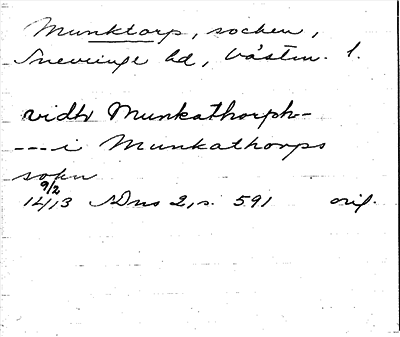 Munktorp, socken,
Snevringe hd, Västm. l.
vidh Munkathorph-
---i Munkathorps
sokn
9/2
1413 SDns 2, s. 591 orig.